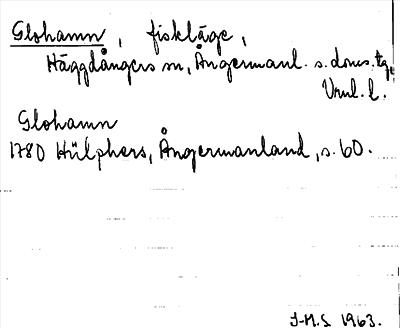 Glohamn, fiskläge,
Häggdångers sn, Ångermanl. s. doms. tg,
Vnl. l.
Glohamn
1780 Hülphers, Ångermanland, s. 60.
J-M.S 1963.